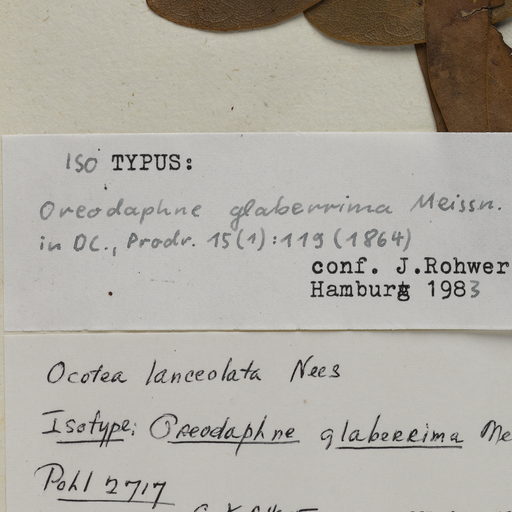 ISO TYPUS:
Oreodaphne glaberrima Meissn.
in DC., Prodr. 15(1):119 (1864)
conf. J.Rohwer
Hamburg 1983
Ocotea lanceolata Nees
Isotype: Oreodaphne glaberrima Me
Pohl 2717